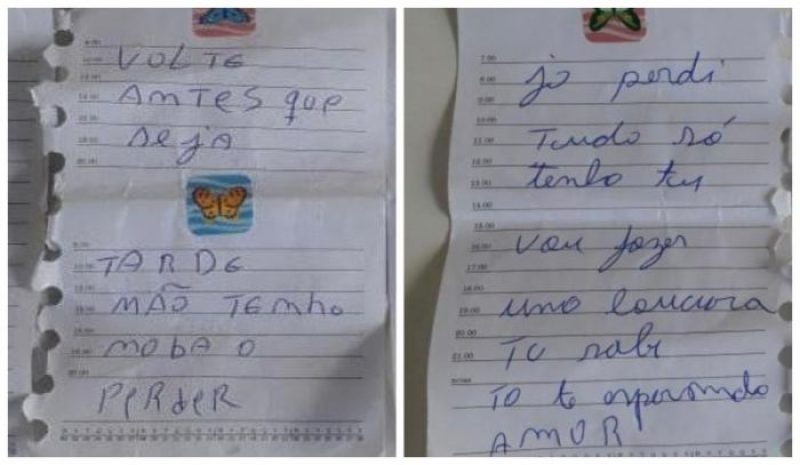 VOLTE
AMTES que
seja
TARDE
MÃO TEMho
moba o
PeRdeR
jo perdi
Tudo só
tenho tu
vou fazer
uno loucura
TU sabe
TO te esperando
AMOR